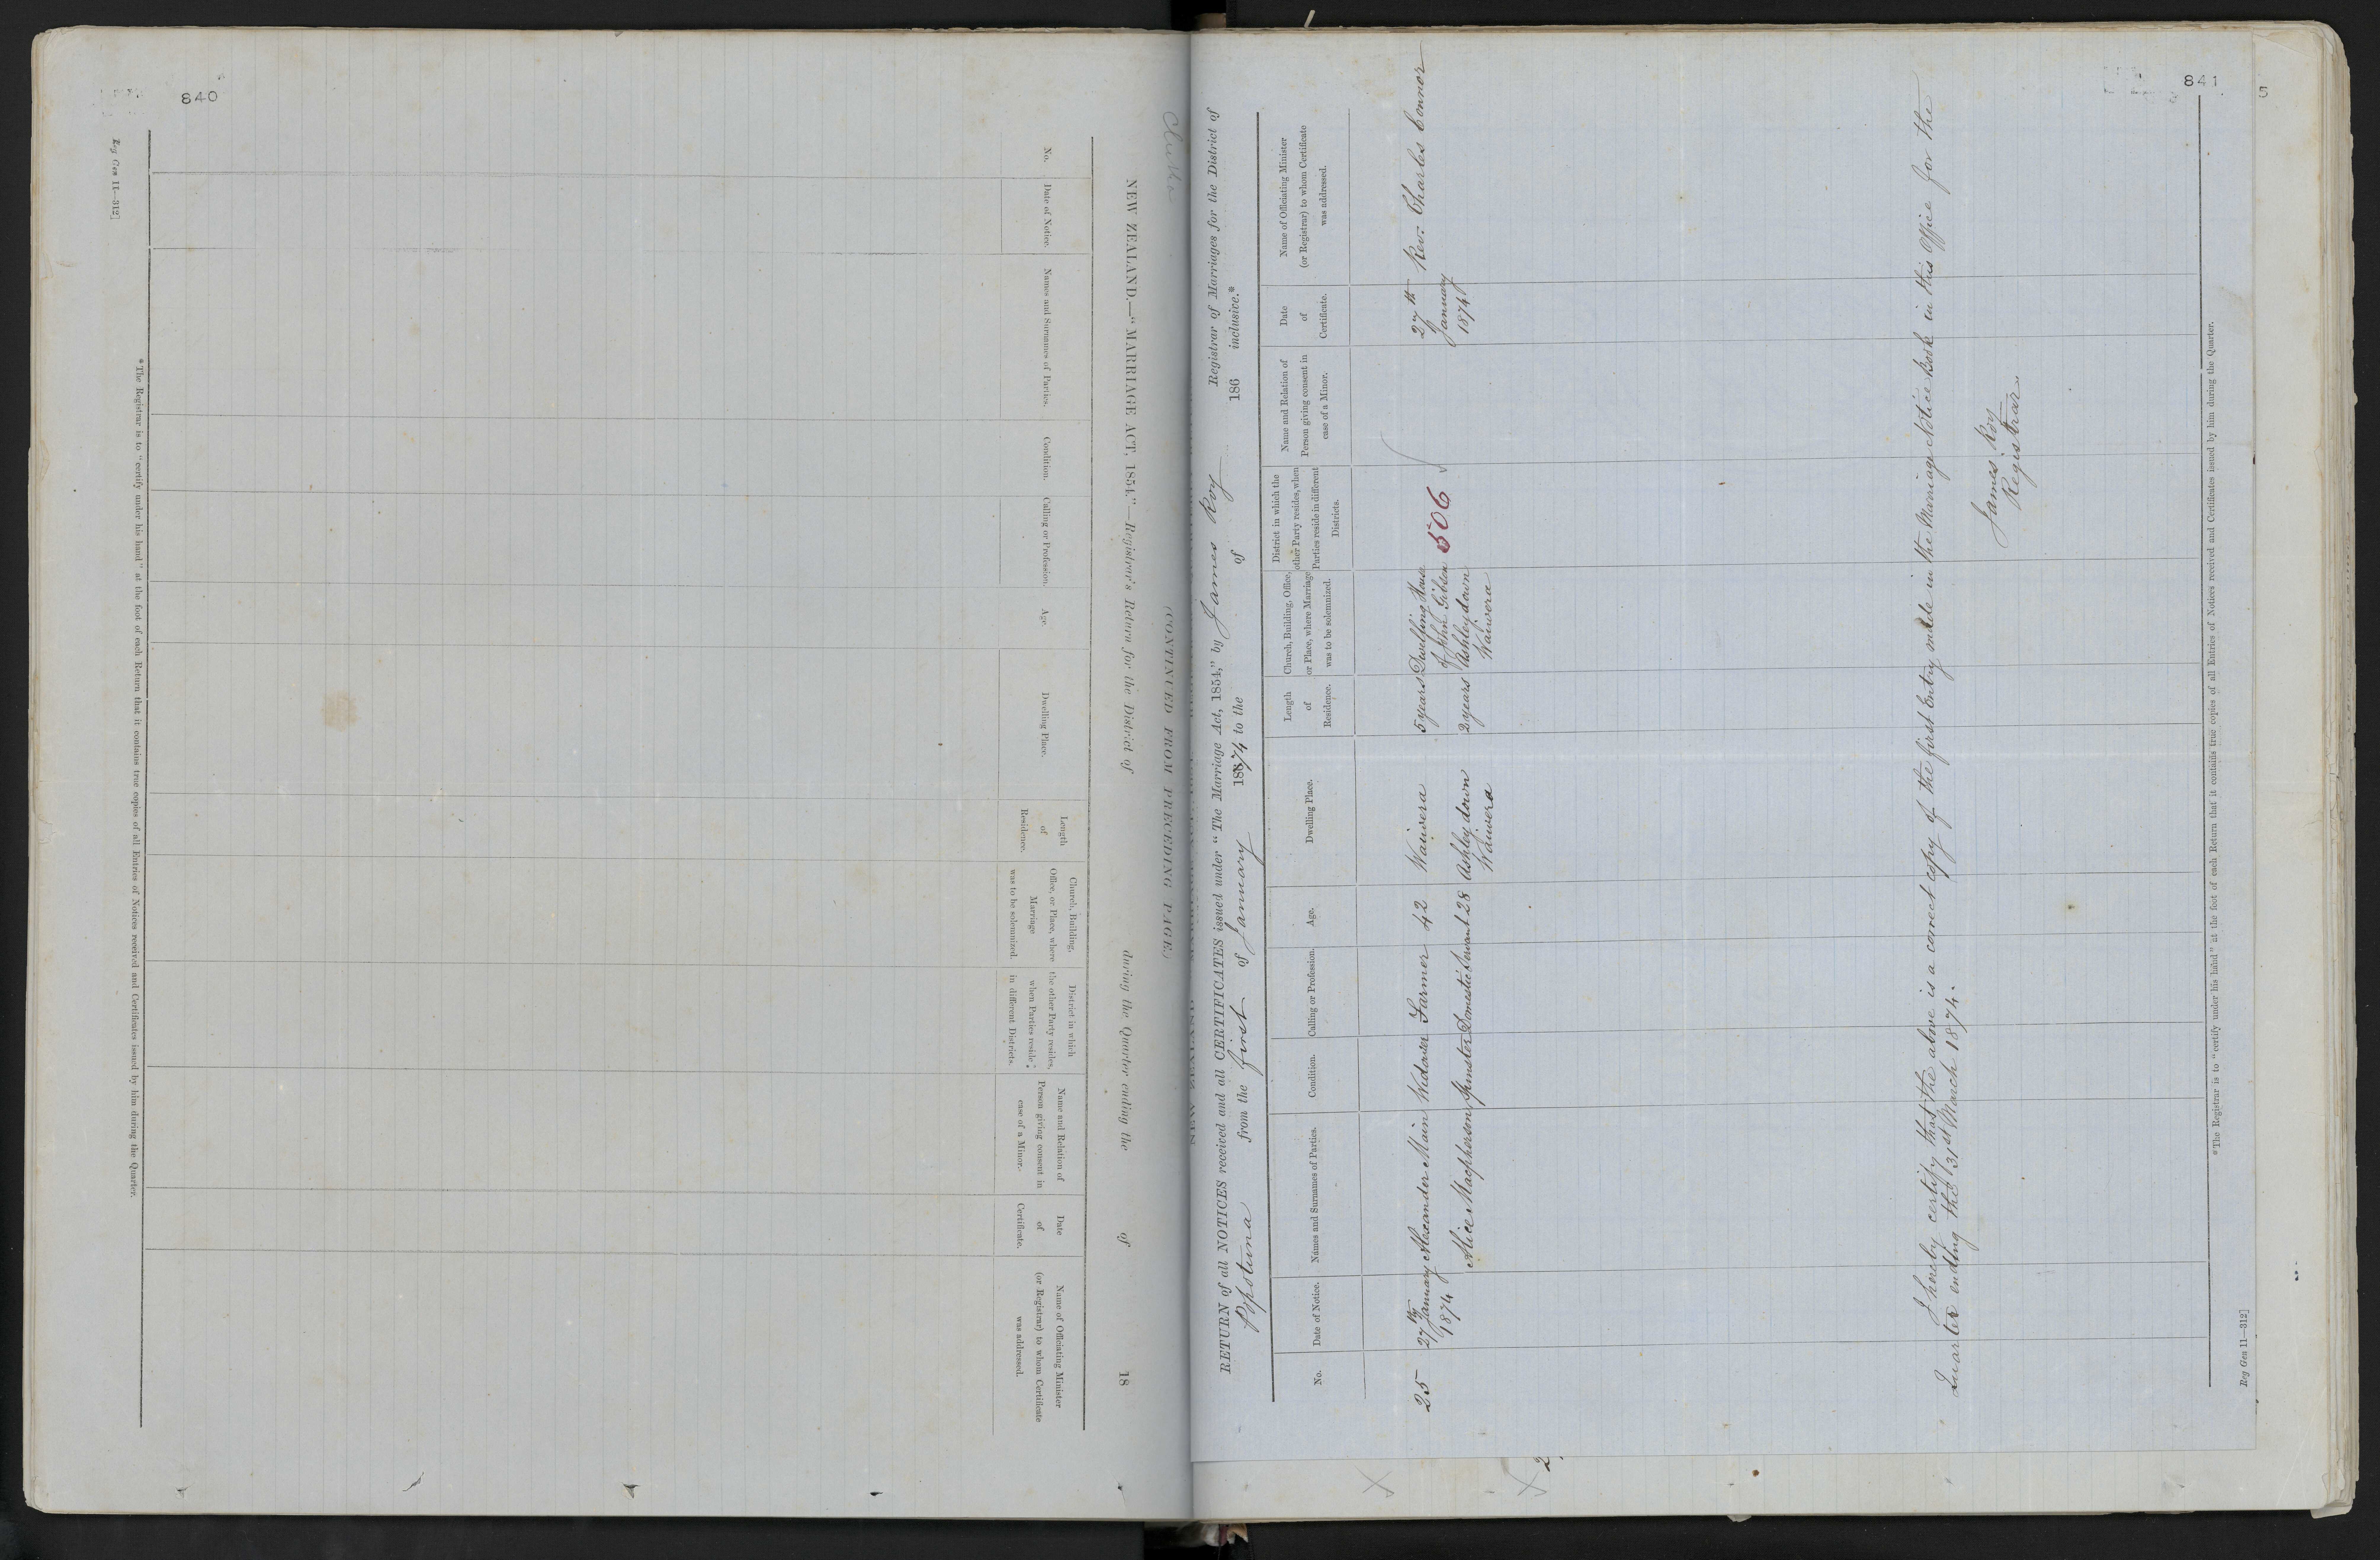 840
Reg Gen 11—312]
NEW ZEALAND.—"MARRIAGE ACT, 1854."—Registrar's Return for the District of during the Quarter ending the of 18
(CONTINUED FROM PRECEDING PAGE.)
No.
Date of Notice.
Names and Surnames of Parties.
Condition.
Calling or Profession.
Age.
Dwelling Place.
Length
of
Residence.
Church, Building,
Office, or Place, where
Marriage
was to be solemnized.
District in which
the other Party resides,
when Parties reside
in different Districts.
Name and Relation of
Person giving consent in
case of a Minor.
Date
of
Certificate.
Name of Officiating Minister
(or Registrar) to whom Certificate
was addressed.
*The Registrar is to "certify under his hand" at the foot of each Return that it contains true copies of all Entries of Notices received and Certificates issued by him during the Quarter.
Clutha
841
RETURN of all NOTICES received and all CERTIFICATES issued under "The Marriage Act, 1854," by James Roy Registrar of Marriages for the District of
Popotuna from the first of January 1874 to the of 186 inclusive.*
No.
Date of Notice.
Names and Surnames of Parties.
Condition.
Calling or Profession.
Age.
Dwelling Place.
Length
of
Residence.
Church, Building, Office,
or Place, where Marriage
was to be solemnized.
District in which the
other Party resides, when
Parties reside in different
Districts.
Name and Relation of
Person giving consent in
case of a Minor.
Date
of
Certificate.
Name of Officiating Minister
(or Registrar) to whom Certificate
was addressed.
25
27th January
1874
Alexander Main
Widower
Farmer
42
Waiwera
5 years
Alice Macpherson
Spinster
Domestic Servant
28
Ashley down
Waiwera
2 years
Dwelling House
of John Gibson
Ashley down
Waiwera
506
27th
January
1874
Rev. Charles Connor
I hereby certify that the above is a correct copy of the first Entry made in the Marriage Notice Book in this Office for the
Quarter ending the 31st March 1874.
James Roy
Registrar.
*The Registrar is to "certify under his hand" at the foot of each Return that it contains true copies of all Entries of Notices received and Certificates issued by him during the Quarter.
Reg Gen 11—312]